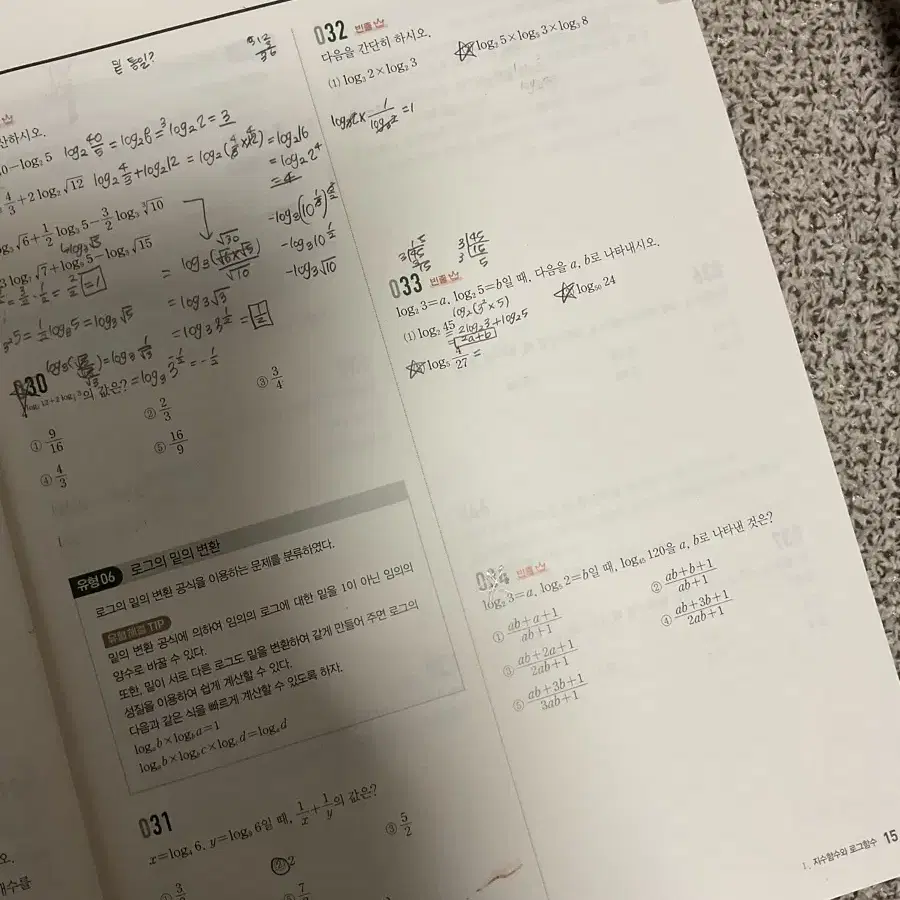 밑 통일?
512
산하시오.
0-log₂5 log₂ 40/5 = log₂8 = 3log₂2 = 3
4/3+2log₂√12 log₂ 4/3 + log₂12 = log₂(4/3×12) = log₂16
= log₂2⁴
= 4
√6+1/2 log₃5-3/2 log₃ ³√10
log₃√5
-log₃10^(1/2)
-log₃√10
3log₇√7+log₃5-log₃√15
= log₃(√6×√5)/√10
√30
= log₃√3
= log₃3^(1/2) = 1/2
5=1/2 log₃5=log₃√5
=log₃ 1/√3
=log₃3^(-1/2) = -1/2
030
의 값은?
① 9/16
② 2/3
③ 3/4
④ 4/3
⑤ 16/9
유형 06 로그의 밑의 변환
로그의 밑의 변환 공식을 이용하는 문제를 분류하였다.
유형해결 TIP
밑의 변환 공식에 의하여 임의의 로그에 대한 밑을 1이 아닌 임의의
양수로 바꿀 수 있다.
또한, 밑이 서로 다른 로그도 밑을 변환하여 같게 만들어 주면 로그의
성질을 이용하여 쉽게 계산할 수 있다.
다음과 같은 식을 빠르게 계산할 수 있도록 하자.
logₐb×log_b a=1
logₐb×log_b c×log_c d=logₐd
031
x=log₄6, y=log₉6일 때, 1/x+1/y의 값은?
① 3/2
② 2
③ 5/2
⑤ 7/2
032 빈출
다음을 간단히 하시오.
(1) log₃2×log₂3
log₂5×log₅3×log₃8
=1
3 45
3 15
5
033 빈출
log₂3=a, log₂5=b일 때, 다음을 a, b로 나타내시오.
log₂(3²×5)
(1) log₂45 = 2log₂3+log₂5
log₅₀24
= 2a+b
log₅ 4/27 =
034 빈출
log₂3=a, log₅2=b일 때, log₄₅120을 a, b로 나타낸 것은?
① (ab+a+1)/(ab+1)
② (ab+b+1)/(ab+1)
③ (ab+2a+1)/(2ab+1)
④ (ab+3b+1)/(2ab+1)
⑤ (ab+3b+1)/(3ab+1)
오.
개수를
Ⅰ. 지수함수와 로그함수 15